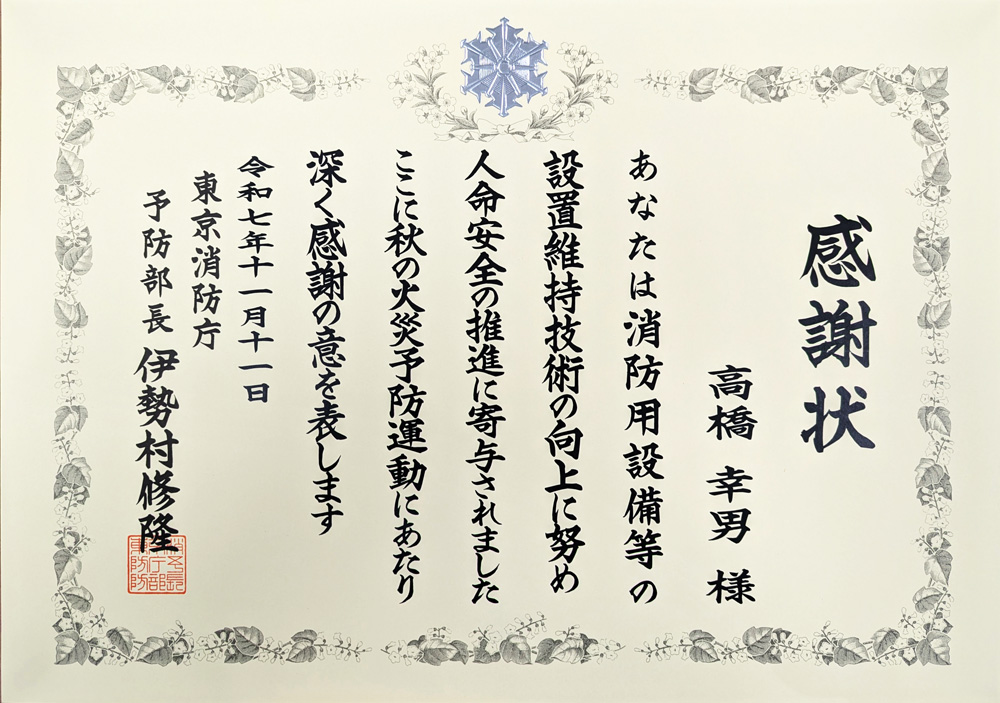 感謝状
高橋 幸男 様
あなたは消防用設備等の
設置維持技術の向上に努め
人命安全の推進に寄与されました
ここに秋の火災予防運動にあたり
深く感謝の意を表します
令和七年十一月十一日
東京消防庁
予防部長 伊勢村修隆